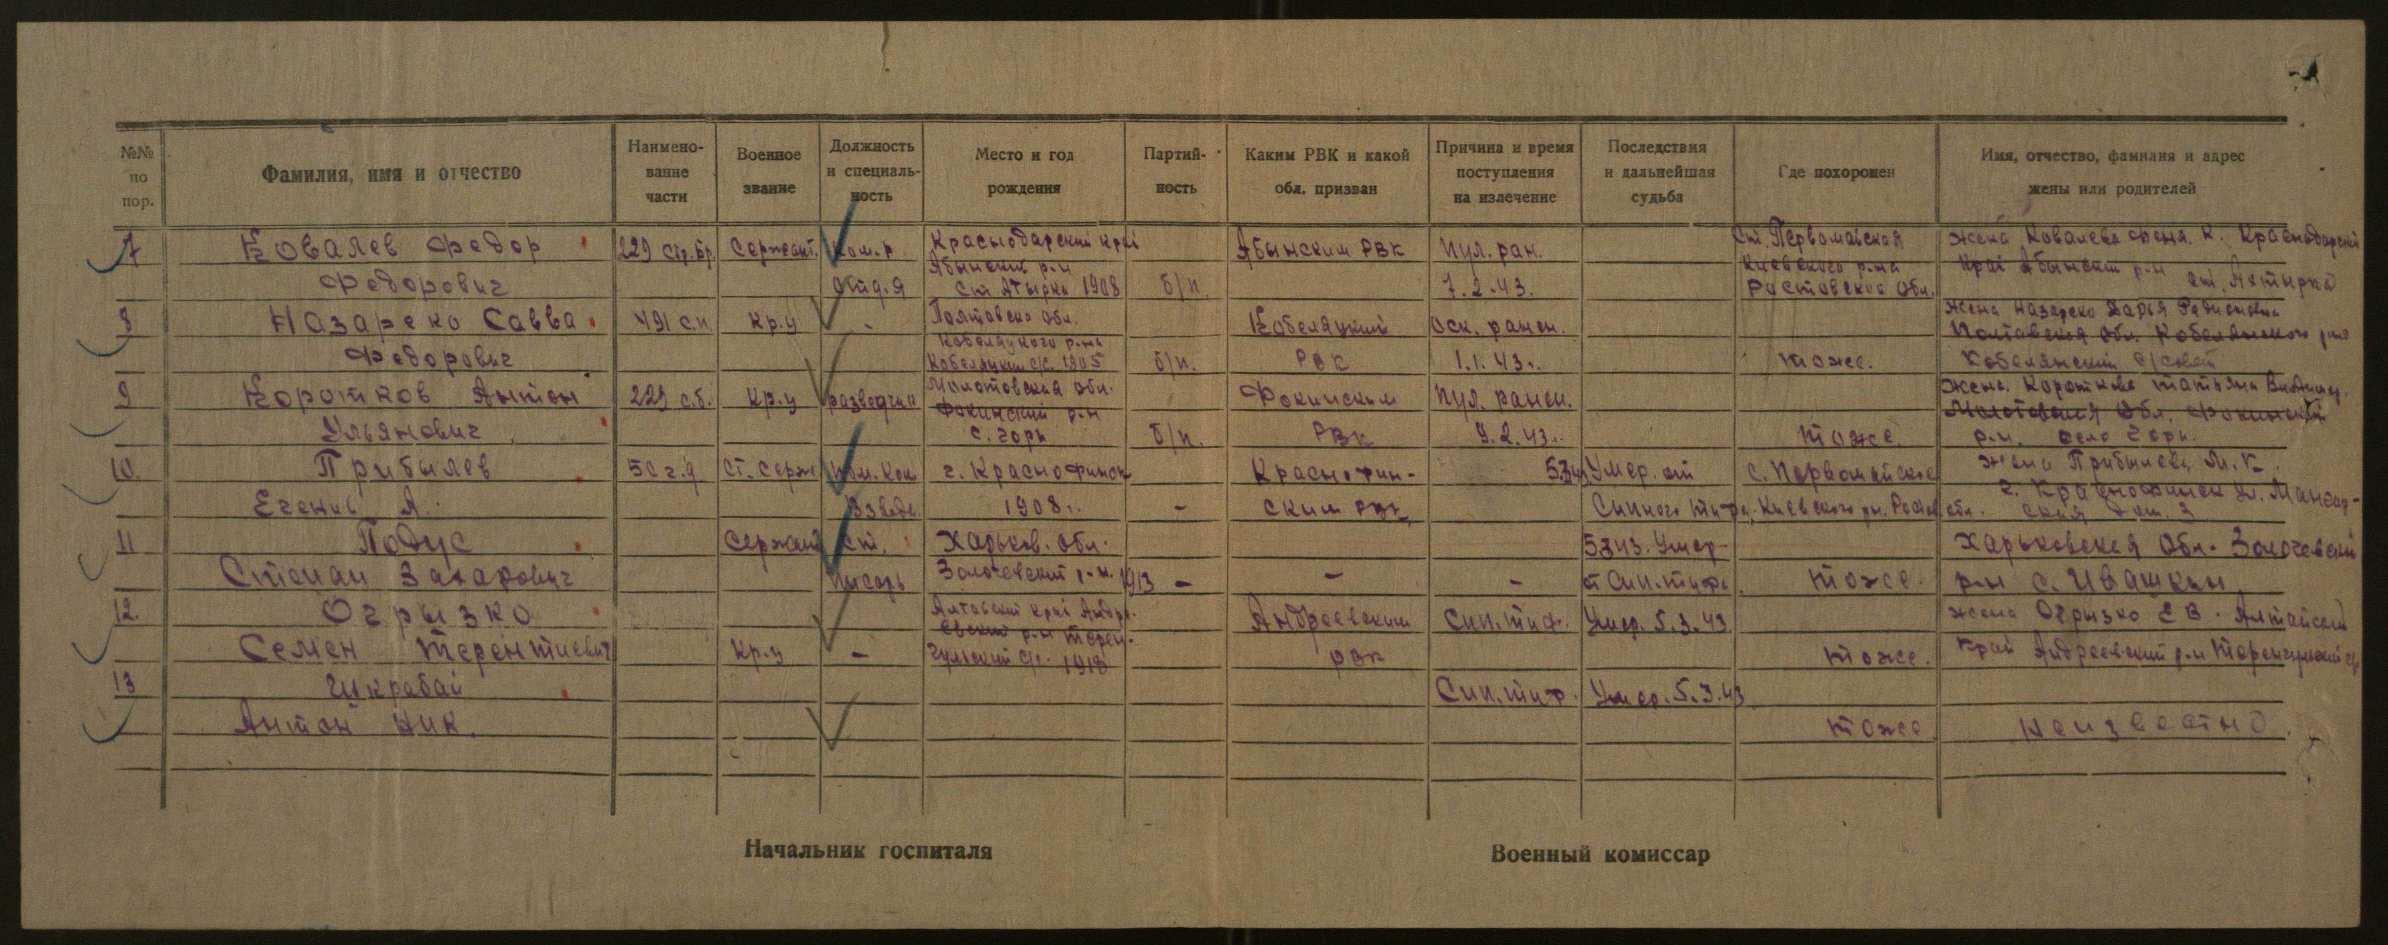 №№ по пор.
Фамилия, имя и отчество
Наимено-
вание
части
Военное
звание
Должность
и специаль-
ность
Место и год
рождения
Партий-
ность
Каким РВК и какой
обл. призван
Причина и время
поступления
на излечение
Последствия
и дальнейшая
судьба
Где похоронен
Имя, отчество, фамилия и адрес
жены или родителей
7 Ковалев Федор 229 стр.бр. Сержант. Ком.р. Краснодарский край Абынским РВК пул. ран. Ст. Первомайская жена Ковалева Феня. К. Краснодарский
Абынский р-н Киевского р-на край Абынский р-н ст. Ахтырка
Федорович отд-я ст. Атырка 1908 б/п 7.2.43. Ростовской обл.
8 Назареко Савва 491 с.п. кр-ц - Полтавско обл. Кобеляцкий оск. ранен. Жена Назареко Дарья
Кобеляцкого р-на Полтавская обл. Кобелянского р-на
Федорович Кобеляцкий с/с. 1905 б/п. РВК 1.1.43г. тоже. Кобелянский с/совет
9 Коротков Антон 229 с.б. кр-ц разведчик Молотовская обл. Фокинским пул. ранен. жена. Короткова Татьяна
Фокинский р-н Молотовская обл. Фокинский
Ульянович с. горы б/п. РВК 9.2.43г. тоже р-н. село Горы.
10. Прибылев 50 г.д ст. серж пом. ком г. Краснофимск Краснофим- 5.3.43 Умер. от с. Первомайское жена Прибылева М. К.
г. Краснофимск ул. Мангар-
Евгений А. Взвода 1908г. - ским РВК Сыпного тифа. Киевского рн. Ростов обл. ская дом. 3
11 Подус Сержант ст. Харьков. обл. 5.3.43. Умер Харьковская обл. Золочевский
Степан Захарович писарь Золочевский р-н. 1913 - - - от сып.тифа. тоже. р-н с. Ивашки
12. Огрызко Алтайский край Андре- Андреевским Сып.тиф. Умер. 5.3.43 жена Огрызко Е В. Алтайский
евский р-н Терен-
Семен Терентиевич кр-ц - гульский с/с. 1918 РВК тоже. край Андреевский р-н Теренгульский с/с
13 Шкрабай Сып.тиф. Умер. 5.3.43
Антон Ник. тоже неизвестно.
Начальник госпиталя
Военный комиссар